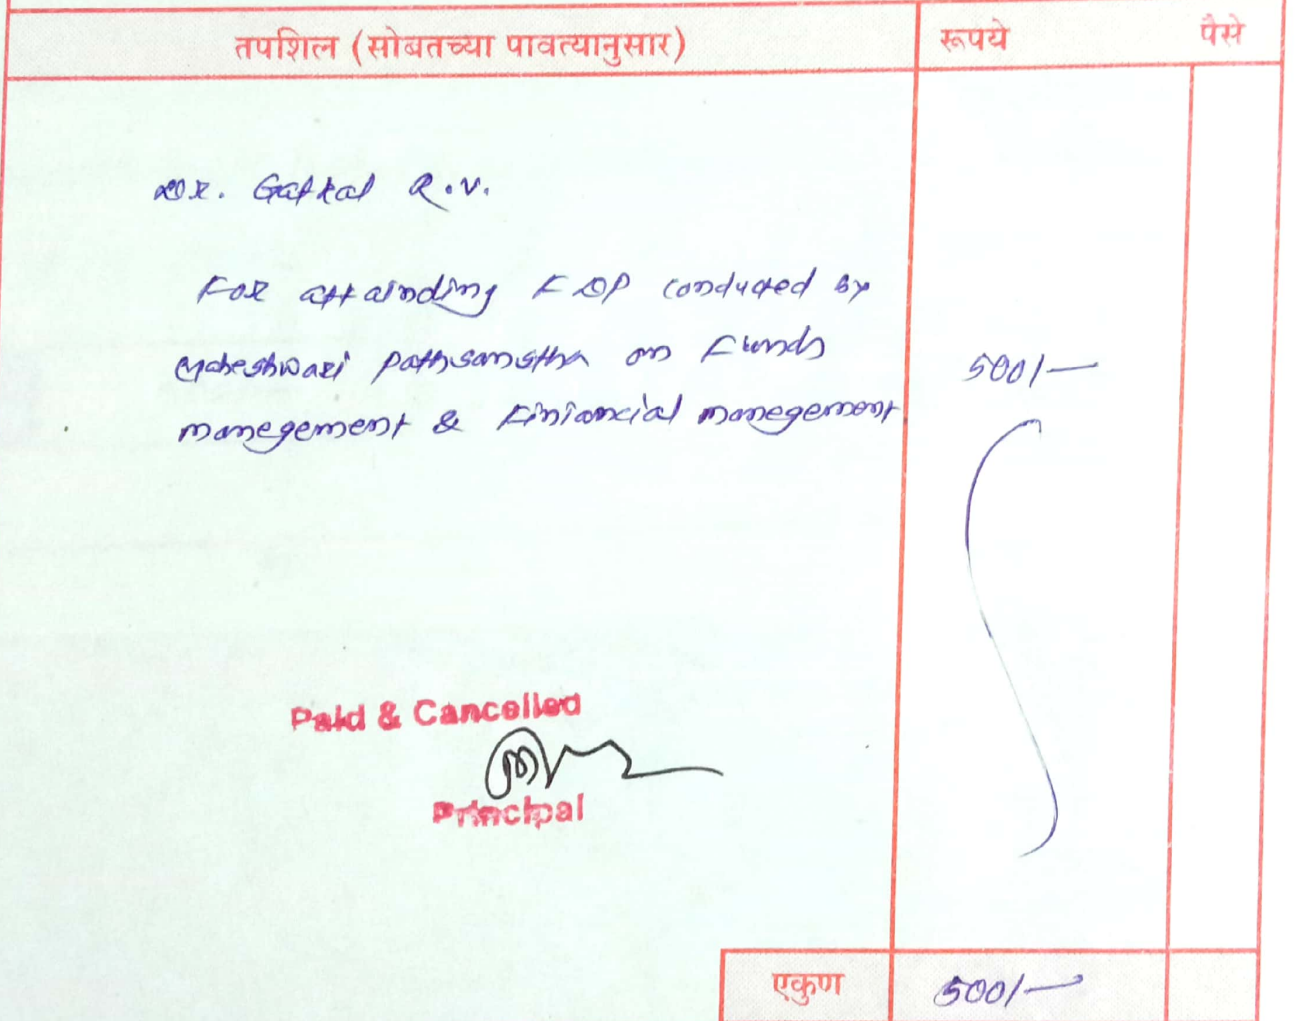 तपशिल (सोबतच्या पावत्यानुसार) रूपये पैसे
Dr. Gatkal R.V.
For attainding FDP conducted by
Maheshwari pathsanstha on Funds
manegement & Finiancial manegement
500/-
Paid & Cancelled
Principal
एकुण 500/-